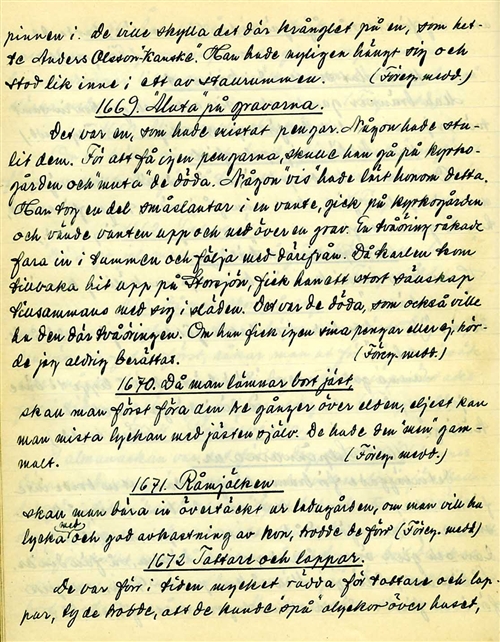 pinnen i. De ville skylla det där krånglet på en, som het-
te Anders Olsson "Kanská". Han hade nyligen hängt sig och
stod lik inne i ett av stallrummen. (Föreg. medd.)
1669. "Muta" på gravarna.
Det var en, som hade mistat pengar. Någon hade stu-
lit dem. För att få igen pengarna, skulle han gå på kyrko-
gården och "muta" de döda. Någon "vis" hade lärt honom detta.
Han tog en del småslantar i en vante, gick på kyrkogården
och vände vanten upp och ned över en grav. En tvåöring råkade
fara in i tummen och följa med därifrån. Då karlen kom
tillbaka hit upp på Storsjön, fick han ett stort sällskap
tillsammans med sig i släden. Det var de döda, som också ville
ha den där tvåöringen. Om han fick igen sina pengar eller ej hör-
de jag aldrig berättas. (Föreg. medd.)
1670. Då man lämnar bort jäst
skall man först föra den tre gånger över elden, eljest kan
man mista lyckan med jästen själv. De hade den "men" gam-
malt. (Föreg. medd.)
1671. Råmjölken
skall man bära in övertäckt ur ladugården, om man vill ha
lycka med och god avkastning av kon, trodde de förr (Föreg. medd)
1672 Tattare och lappar.
De var förr i tiden mycket rädda för tattare och lap-
par, ty de trodde, att de kunde "spå" olyckor över huset,